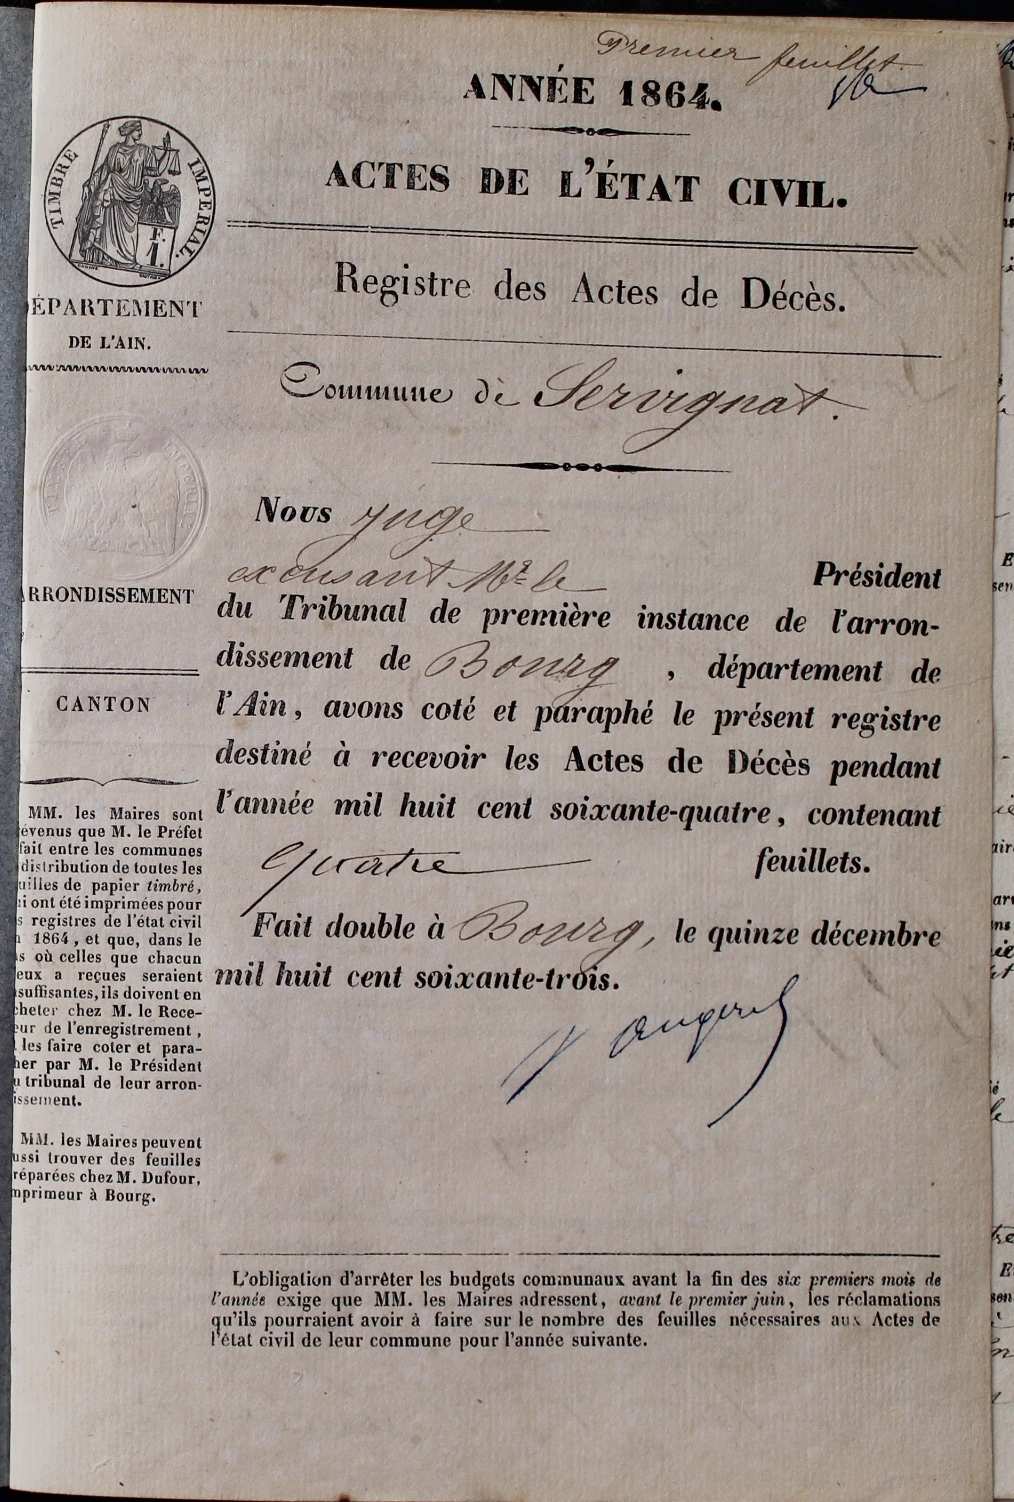 Premier feuillet.
ANNÉE 1864.
ACTES DE L'ÉTAT CIVIL.
TIMBRE IMPERIAL.
F.
1.
DÉPARTEMENT
DE L'AIN.
Registre des Actes de Décès.
Commune de Servignat.
Nous Juge
excusant Mr le Président
du Tribunal de première instance de l'arron-
dissement de Bourg, département de
l'Ain, avons coté et paraphé le présent registre
destiné à recevoir les Actes de Décès pendant
l'année mil huit cent soixante-quatre, contenant
quatre feuillets.
Fait double à Bourg, le quinze décembre
mil huit cent soixante-trois.
RRONDISSEMENT
CANTON
MM. les Maires sont
évenus que M. le Préfet
fait entre les communes
distribution de toutes les
uilles de papier timbré,
i ont été imprimées pour
s registres de l'état civil
1864, et que, dans le
s où celles que chacun
eux a reçues seraient
suffisantes, ils doivent en
cheter chez M. le Rece-
eur de l'enregistrement,
les faire coter et para-
her par M. le Président
u tribunal de leur arron-
issement.
MM. les Maires peuvent
ussi trouver des feuilles
réparées chez M. Dufour,
mprimeur à Bourg.
L'obligation d'arrêter les budgets communaux avant la fin des six premiers mois de
l'année exige que MM. les Maires adressent, avant le premier juin, les réclamations
qu'ils pourraient avoir à faire sur le nombre des feuilles nécessaires aux Actes de
l'état civil de leur commune pour l'année suivante.